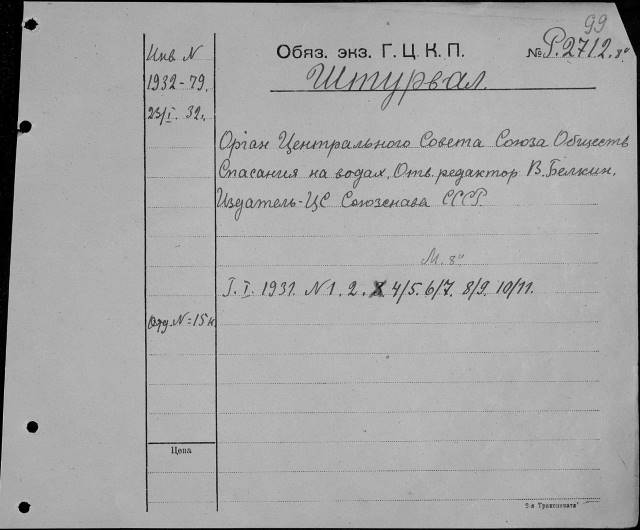 99
Инв N
1932-79.
23/I. 32.
Обяз. экз. Г.Ц.К.П.
№ Р.2712.8"
Штурвал.
Орган Центрального Совета Союза Обществ
Спасания на водах, Отв. редактор В. Белкин.
Издатель-ЦС Союзснава СССР.
М. 8"
Г. I. 1931. N 1. 2. 4/5. 6/7. 8/9. 10/11.
Отд. N = 15 к.
Цена
2-я Транспечати